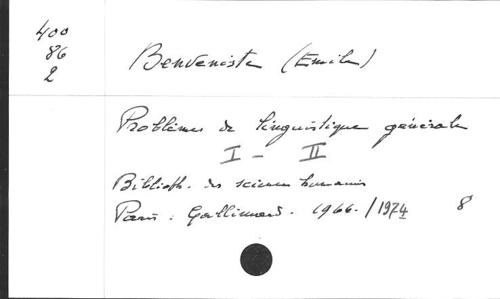 400
86
2
Benveniste (Emile)
Problèmes de linguistique générale
I - II
Biblioth. des sciences humaines
Paris. Gallimard. 1966./1974 8